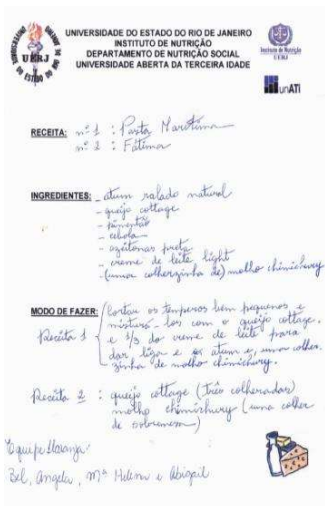 UNIVERSIDADE DO ESTADO DO RIO DE JANEIRO
INSTITUTO DE NUTRIÇÃO
DEPARTAMENTO DE NUTRIÇÃO SOCIAL
UNIVERSIDADE ABERTA DA TERCEIRA IDADE
UERJ
Instituto de Nutrição
UERJ
unATI
RECEITA: nº 1 : Pasta Marítima
nº 2 : Fátima
INGREDIENTES: - atum ralado natural
- queijo cottage
- pimentão
- cebola
- azeitonas preta
- creme de leite light
- (uma colherzinha de) molho chimichury
MODO DE FAZER: Cortar os temperos bem pequenos e
Receita 1 misturá-los com o queijo cottage.
e 1/3 do creme de leite para
dar liga e o atum e, uma colher
zinha de molho chimichury.
Receita 2 : queijo cottage (três colheradas)
molho chimichury (uma colher
de sobremesa)
Equipe Laranja:
Bel, Angela, Mª Helena e Abigail